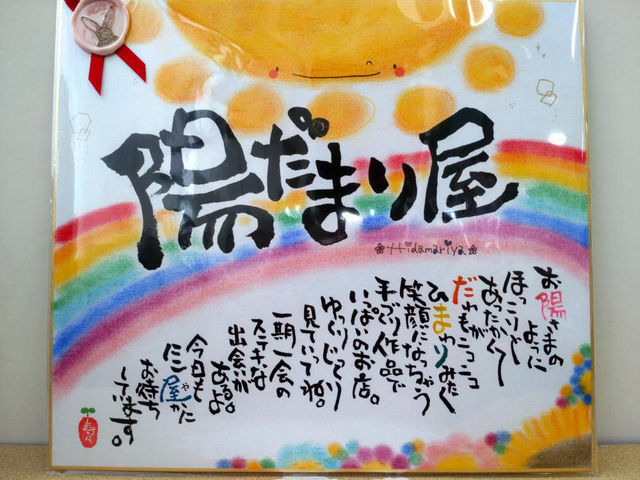 陽だまり屋
Hidamariya
お陽さまの
ように
ほっこりと
あたたか〜く
だれもがニコニコ
ひまわりみたく
笑顔になっちゃう
手づくり作品で
いっぱいのお店。
ゆっくりじっくり
見ていってね。
一期一会の
ステキな
出会いが
あるよ。
今日も
にこ屋かに
お待ち
しています。
寿